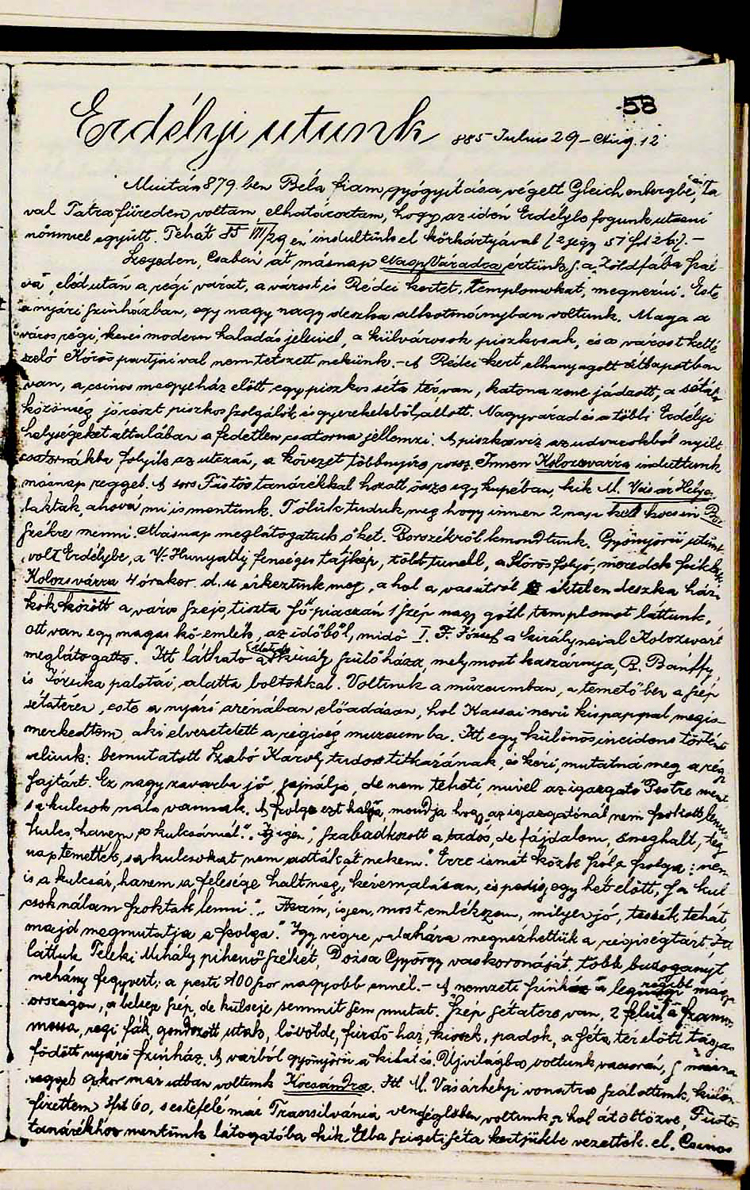 58
Erdélyi utunk 885 Julius 29 – Aug. 12
Miután 879. ben Béla fiam gyógyitása végett Gleichenbergbe, ta
val Tátrafüreden voltam, elhatároztam, hogy az idén Erdélybe fogunk utazni
nőmmel együtt. Tehát 85 VII/29 én indultunk el körkártyával
Szegeden, Csabán át másnap Nagy Váradra értünk, a Zöldfába
ebéd után a régi várat, a várost és Rédei kertet, templomokat, megnézni. Este
a nyári szinházban, egy nagy nagy deszka alkotmányban voltunk. Maga a
város régi, kevés modern haladás jeleivel, a külvárosok piszkosak, és a várost ketté
szelő Körös partjaival nem tetszett nekünk. – A Rédei kert elhanyagolt állapotban
van, a csinos megyeház előtt egy piszkos séta tér van, katona zene játszott, a sétáló
közönség jórészt piszkos szolgálók és gyerekekből állott. Nagyvárad és a többi Erdélyi
helységeket általában a fedetlen csatorna jellemzi. A piszkos viz az udvarokból nyilt
csatornákba folyik az utczán, a kövezet többnyire rossz. Innen Kolozsvárra indultunk
másnap reggel. A sors Füstös tanárékkal hozott össze egy kupéban, kik M. Vásárhelyen
laktak, ahová mi is mentünk. Tőlük tudtuk meg hogy innen 2 nap kell kocsin Bor
székre menni. Másnap meglátogattuk őket. Borszékről lemondtunk. Gyönyörü utunk
volt Erdélybe, a V. Hunyadi fenséges tájkép, több tunell, a Körös folyó, meredek sziklák
Kolozsvárra 4 órakor d. u érkeztünk meg, a hol a vasútról éktelen deszka ház
kók között a város szép, tiszta fő piaczán 1 szép nagy góth templomot láttunk,
ott van egy magas kő emlék, az időből, midő I. F. József a királynéval Kolozsvárt
meglátogatta. Itt látható a Mátyás király szülőháza, mely most kaszárnya, B. Bánffy
és Jósika palotái, alatta boltokkal. Voltunk a múzeumban, a temetőben a szép
sétatéren, este a nyári arénában előadáson, hol Kassai nevü kispappal megis
merkedtem aki elvezetett a régiség muzeumba. Itt egy különös incidens történt
velünk: bemutatott Szabó Károly tudós titkárának, és kéri, mutatná meg a régi
ségtárt. Ez nagy zavarba jő sajnálja, de nem teheti, mivel az igazgató Pestre ment
s a kulcsok nála vannak. A szolga ezt hallja, mondja hogy az igazgatónál nem szokott lenni
kulcs, hanem a kulcsárnál". „Igen igen" szabadkozott a tudós, de fájdalom, ő meghalt, teg
nap temették, s a kulcsokat nem adták át nekem." Erre ismét közbe szól a szolga: „nem
is a kulcsár, hanem a felesége halt meg, kérem alásan, és pedig egy hét előtt, s a kul
csok nálam szoktak lenni". „Ahám, igen, most emlékszem, milyen jó, tessék tehát
majd megmutatja a szolga." Igy végre valahára megnézhettük a régiségtárt. Itt
láttuk Teleki Mihály pihenő székét, Dózsa György vaskoronáját, több buzogányt
néhány fegyvert; a pesti 100 szor nagyobb ennél. – A nemzeti szinház a legrégibb Magyar
országon, a belseje szép, de külseje semmit sem mutat. Szép sétatere van, 2 felül a Szamos
mossa, régi fák, gondozott utak, lövölde, fürdő ház, kiosk, padok, a séta tér előtt tágas
födött nyári szinház. A várból gyönyörü a kilátás. Ujvilágba voltunk vacsorán, s másnap
reggel 9 kor már útban voltunk Kocsárdra. Itt M. Vásárhelyi vonatra szálottunk, külön
fizettem 3 frt 60, s estefelé már Transsilvania vendéglőben voltunk, a hol átöltözve, Füstös
tanárékhoz mentünk látogatóba kik Elba sziget séta kertjükbe vezettek el. Csinos